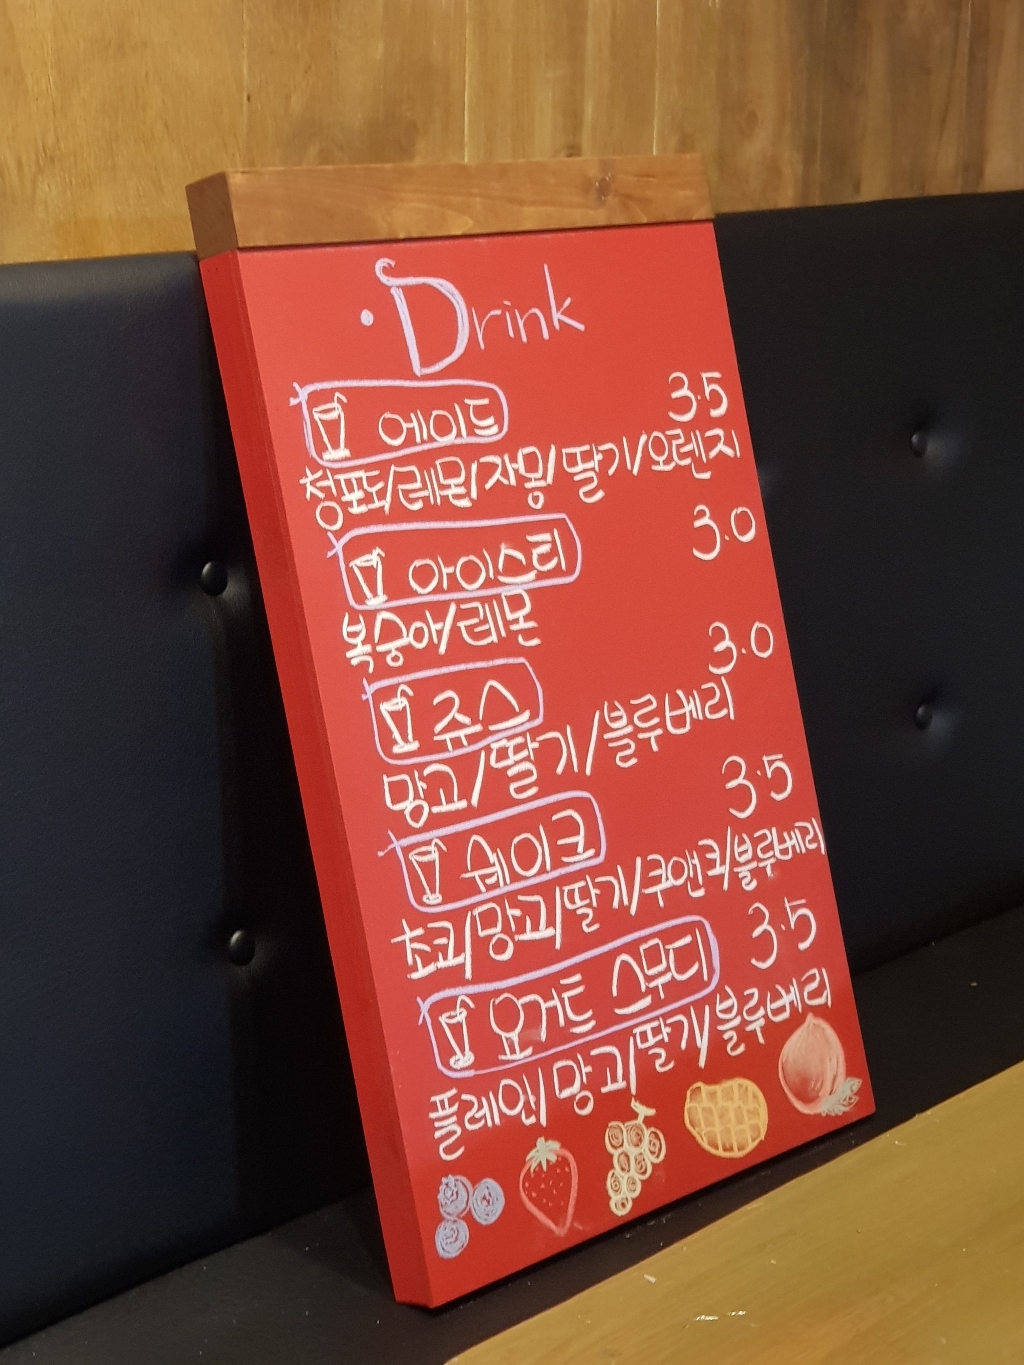 ·Drink
에이드 3.5
청포도/레몬/자몽/딸기/오렌지
아이스티 3.0
복숭아/레몬
쥬스 3.0
망고/딸기/블루베리
쉐이크 3.5
초코/망고/딸기/쿠앤크/블루베리
요거트 스무디 3.5
플레인/망고/딸기/블루베리